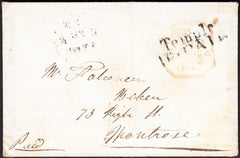 Temple
1E.PAID
Mr Falconer
73 High St.
Montrose
Paid